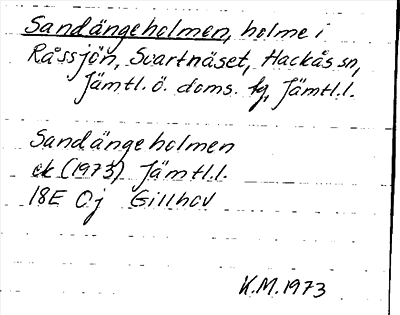 Sandängeholmen, holme i
Råssjön, Svartnäset, Hackås sn,
Jämtl. ö. doms. fg, Jämtl.l.
Sandängeholmen
ek (1973) Jämtl.l.
18E Oj Gillhov
K.M. 1973